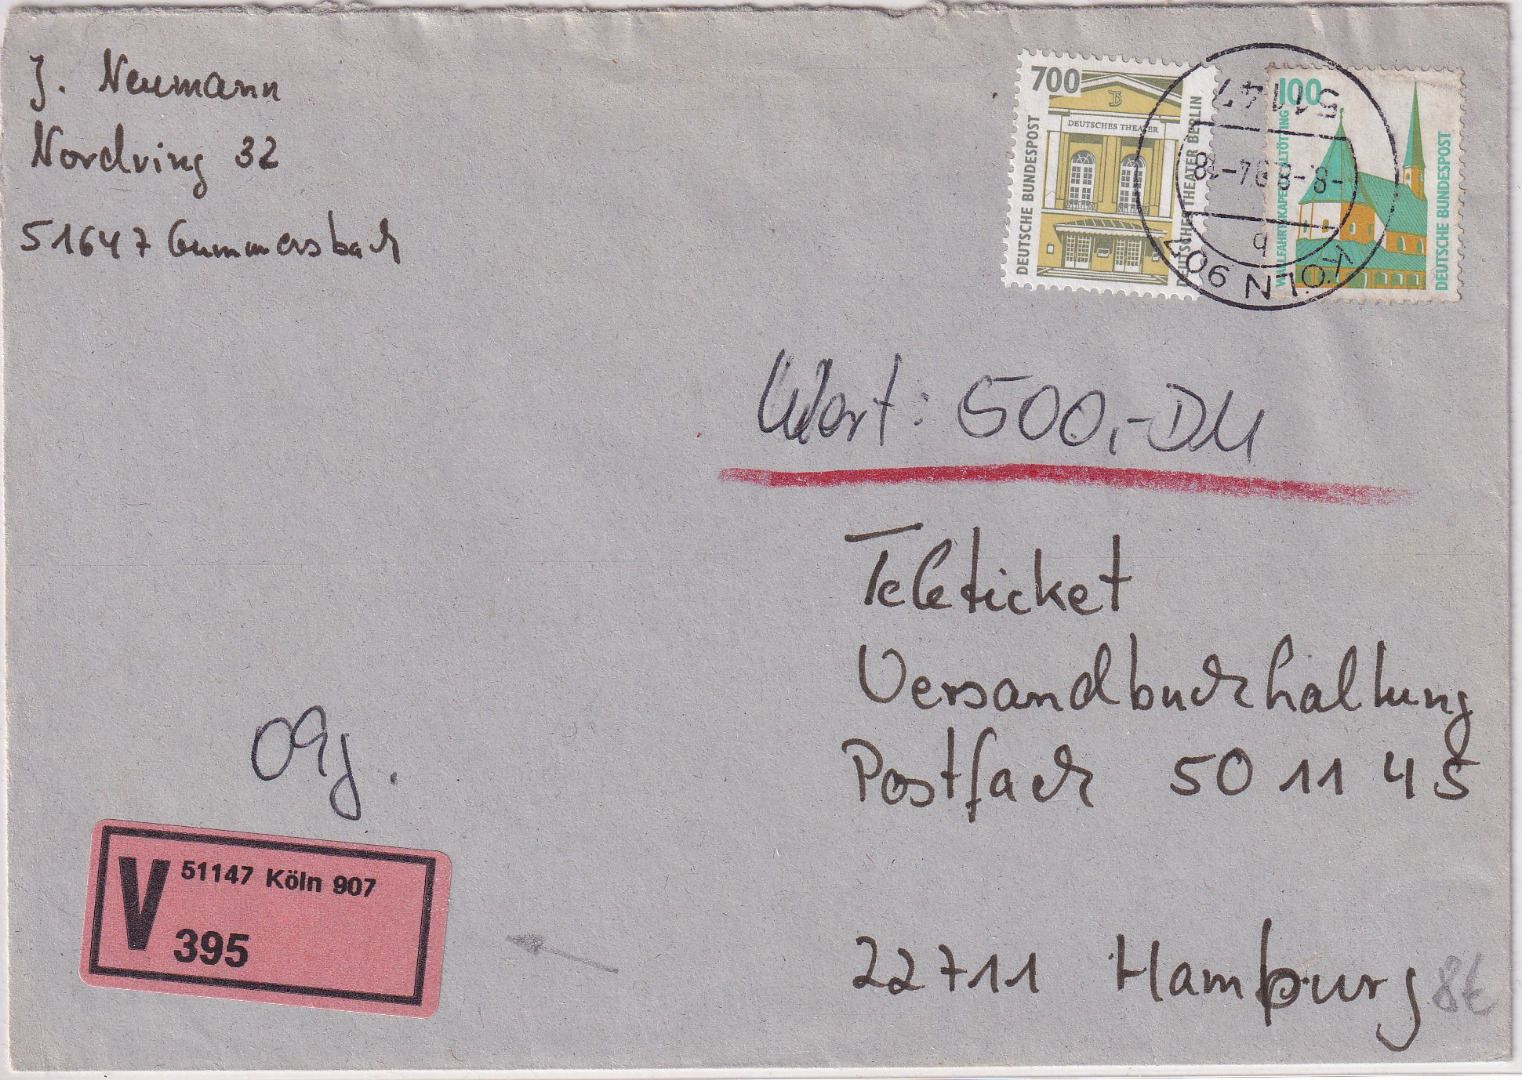 J. Neumann
Nordring 32
51647 Gummersbach
700
DEUTSCHE BUNDESPOST
DEUTSCHES THEATER
DEUTSCHES THEATER BERLIN
100
WALLFAHRTSKAPELLE ALTÖTTING
DEUTSCHE BUNDESPOST
51147
-8.-8.94-18
KÖLN 907
q
Wert: 500,-DM
Teleticket
Versandbuchhaltung
Postfach 50 11 45
22711 Hamburg
8€
V 51147 Köln 907
395